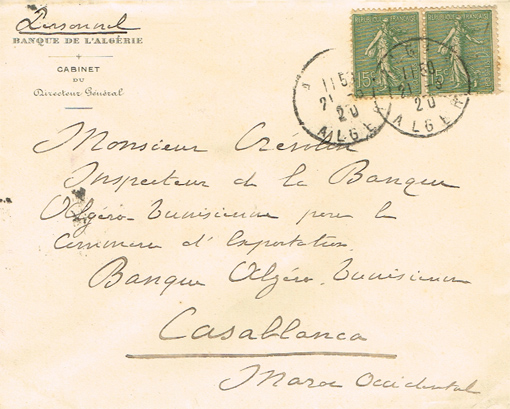 Personnel
BANQUE DE L'ALGÉRIE
CABINET
DU
Directeur Général
REPUBLIQUE FRANÇAISE REPUBLIQUE FRANÇAISE
15c 15c
11 50 11 50
21 21
20 20
ALGER ALGER
Monsieur
Inspecteur de la Banque
Algéro-Tunisienne pour le
Commerce d'Exportation
Banque Algéro-Tunisienne
Casablanca
Maroc Occidental